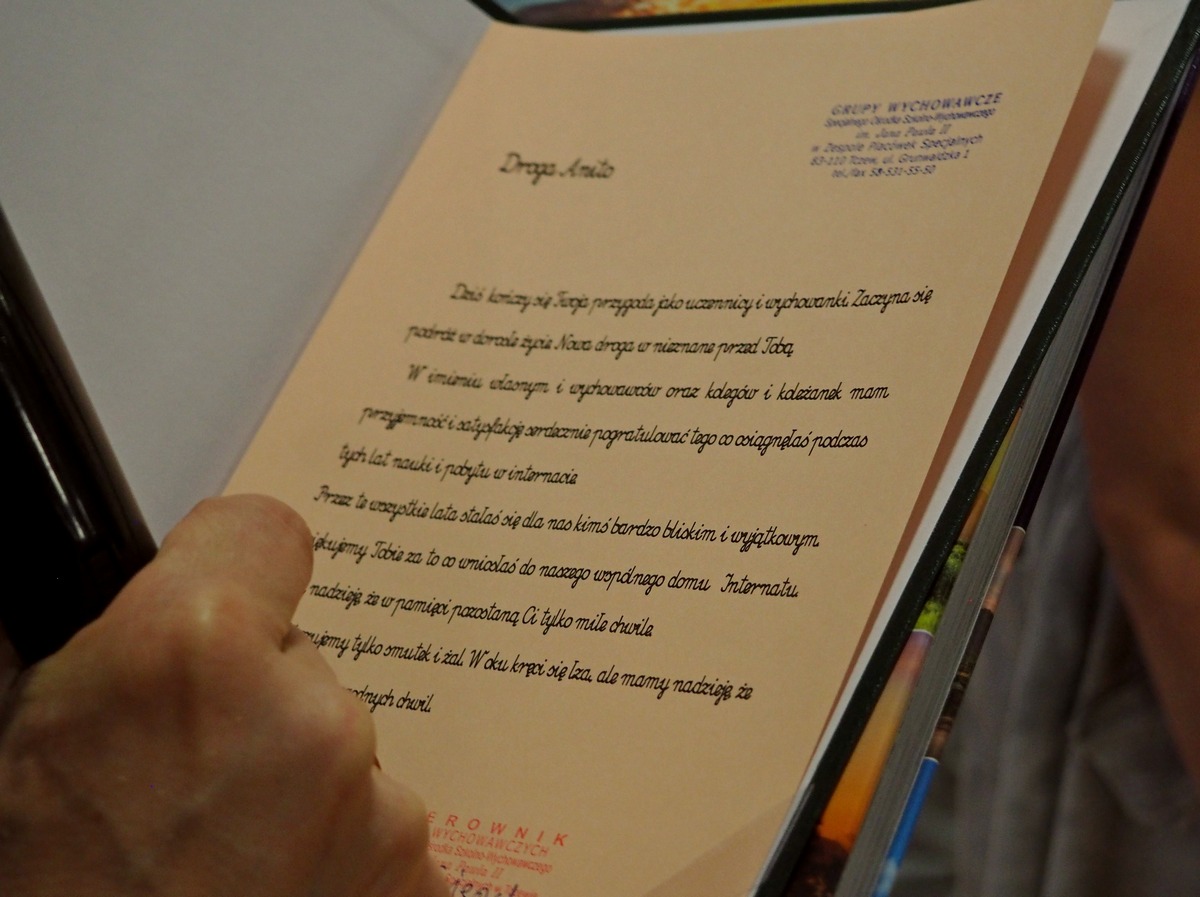 GRUPY WYCHOWAWCZE
Specjalnego Ośrodka Szkolno-Wychowawczego
im. Jana Pawła II
w Zespole Placówek Specjalnych
83-110 Tczew, ul. Grunwaldzka 1
tel./fax 58-531-55-50
Droga Anito
Dziś kończy się Twoja przygoda jako uczennicy i wychowanki. Zaczyna się
podróż w dorosłe życie. Nowa droga w nieznane przed Tobą.
W imieniu własnym i wychowawców oraz kolegów i koleżanek mam
przyjemność i satysfakcję serdecznie pogratulować tego co osiągnęłaś podczas
tych lat nauki i pobytu w internacie.
Przez te wszystkie lata stałaś się dla nas kimś bardzo bliskim i wyjątkowym.
iękujemy Tobie za to co wniosłaś do naszego wspólnego domu Internatu.
nadzieję, że w pamięci pozostaną Ci tylko miłe chwile.
ujemy tylko smutek i żal. W oku kręci się łza, ale mamy nadzieję, że
odnych chwil.
EROWNIK
WYCHOWAWCZYCH
środka Szkolno-Wychowawczego
Jana Pawła II